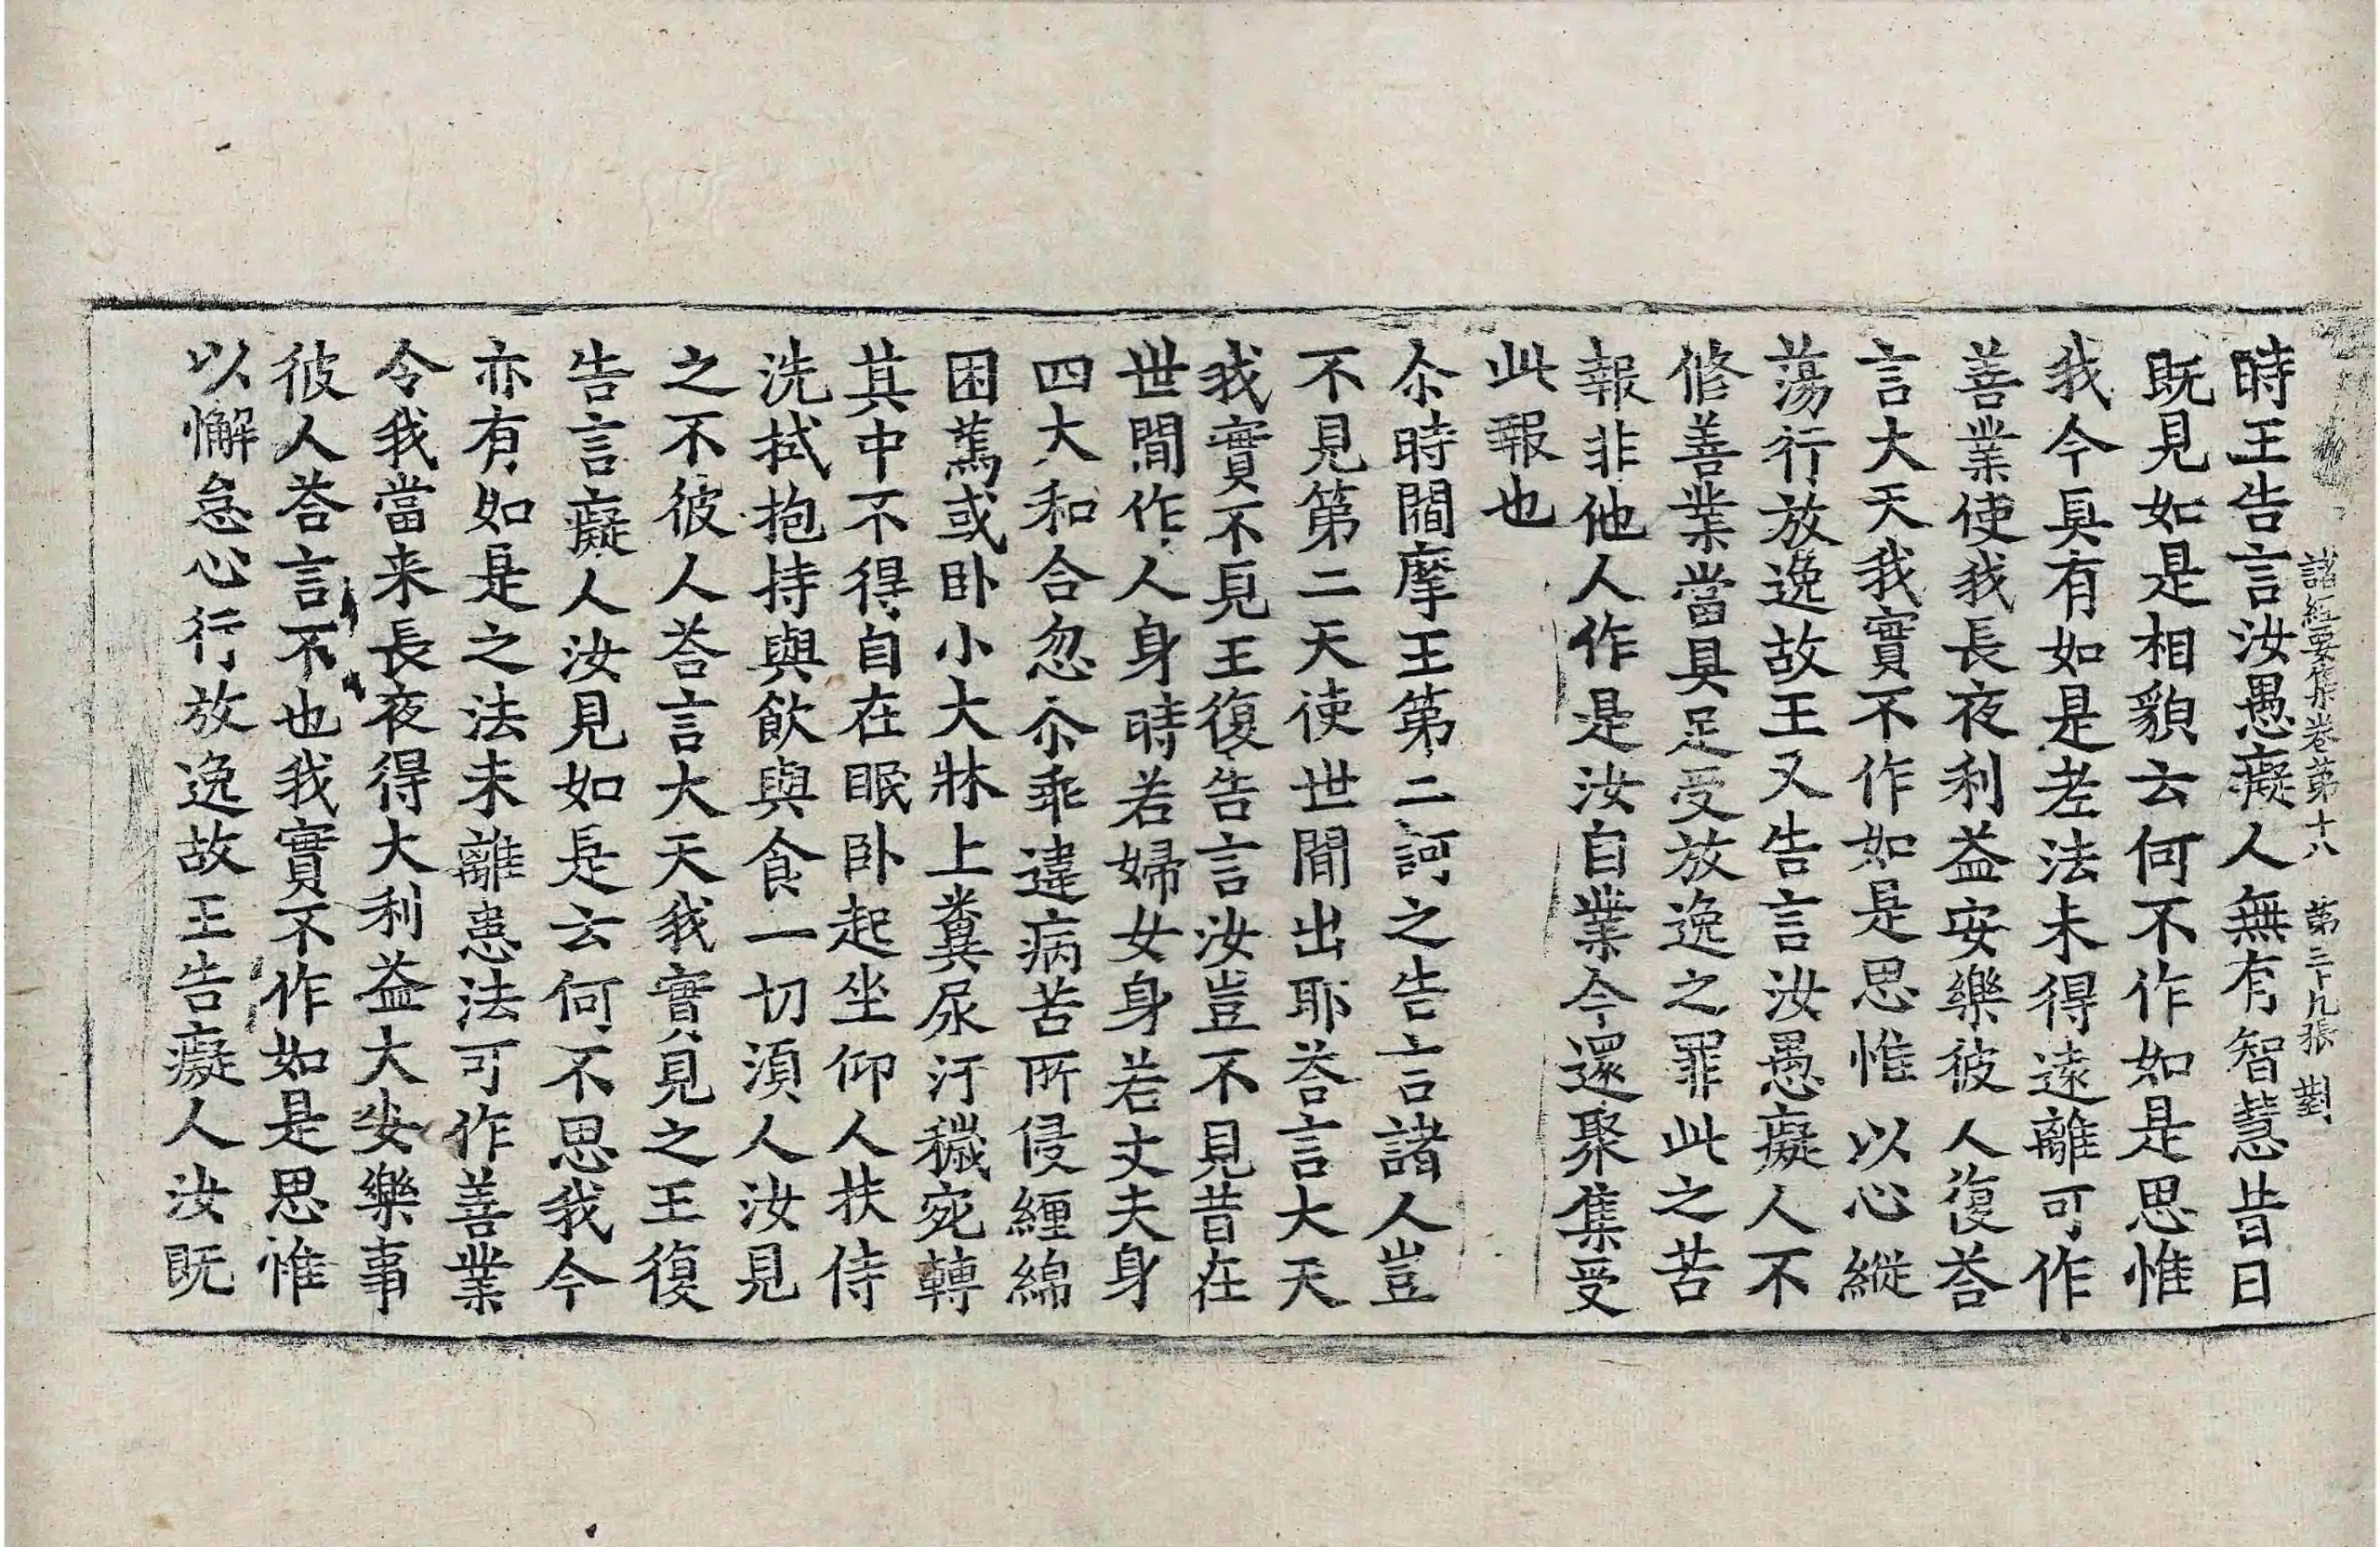 諸經要集卷第十八　第三十九張　對
時王告言汝愚癡人無有智慧昔日
既見如是相貌云何不作如是思惟
我今具有如是老法未得遠離可作
善業使我長夜利益安樂彼人復荅
言大天我實不作如是思惟以心縱
蕩行放逸故王又告言汝愚癡人不
修善業當具足受放逸之罪此之苦
報非他人作是汝自業今還聚集受
此報也
尒時閻摩王第二訶之告言諸人豈
不見第二天使世間出耶荅言大天
我實不見王復告言汝豈不見昔在
世間作人身時若婦女身若丈夫身
四大和合忽尒乖違病苦所侵纏綿
困篤或卧小大牀上糞尿汙穢宛轉
其中不得自在眠卧起坐仰人扶侍
洗拭抱持與飲與食一切湏人汝見
之不彼人荅言大天我實見之王復
告言癡人汝見如是云何不思我今
亦有如是之法未離患法可作善業
令我當来長夜得大利益大安樂事
彼人荅言不也我實不作如是思惟
以懈怠心行放逸故王告癡人汝既